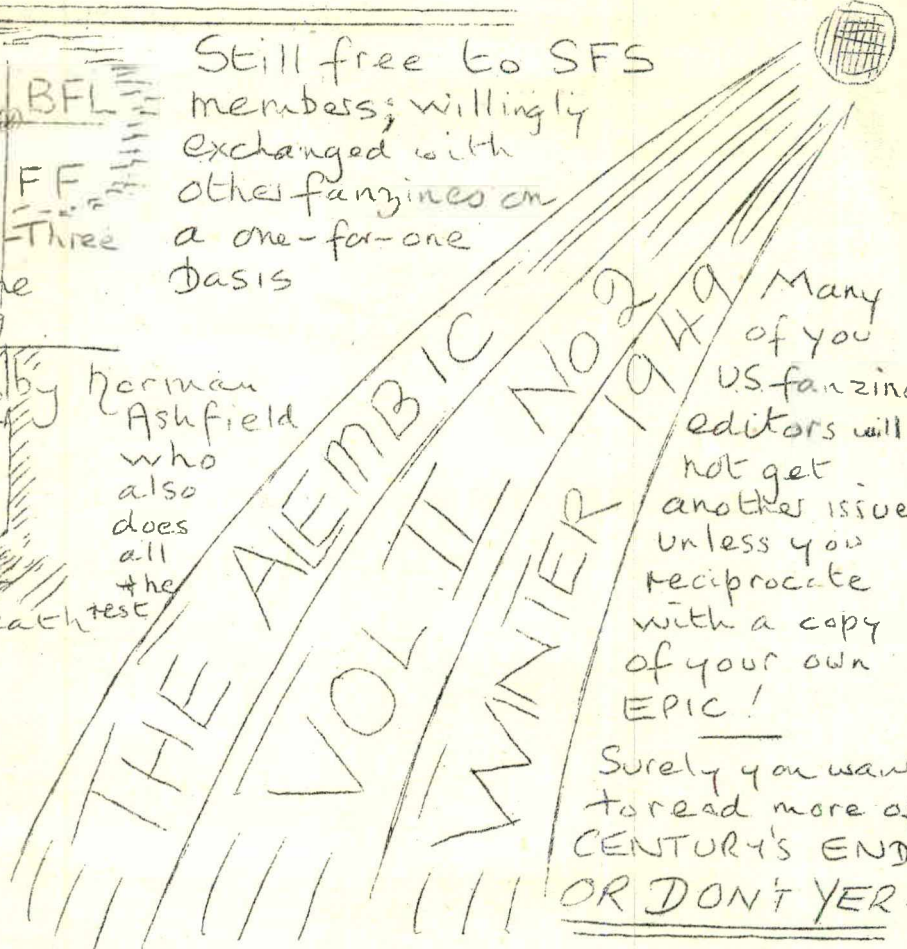 BFL
FF
-Three
Still free to SFS
members; willingly
exchanged with
other fanzines on
a one-for-one
basis
by Norman
Ashfield
who
also
does
all
the
rest
THE ALEMBIC
VOL II No 2
WINTER 1949
Many
of you
US fanzin
editors will
not get
another issue
unless you
reciprocate
with a copy
of your own
EPIC!
Surely you wan
to read more o
CENTURY'S END
OR DON'T YER